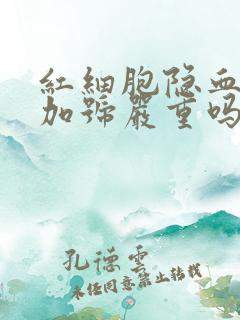 紅細胞隐血
加號嚴重吗
孔德雲
未经同意禁止转载